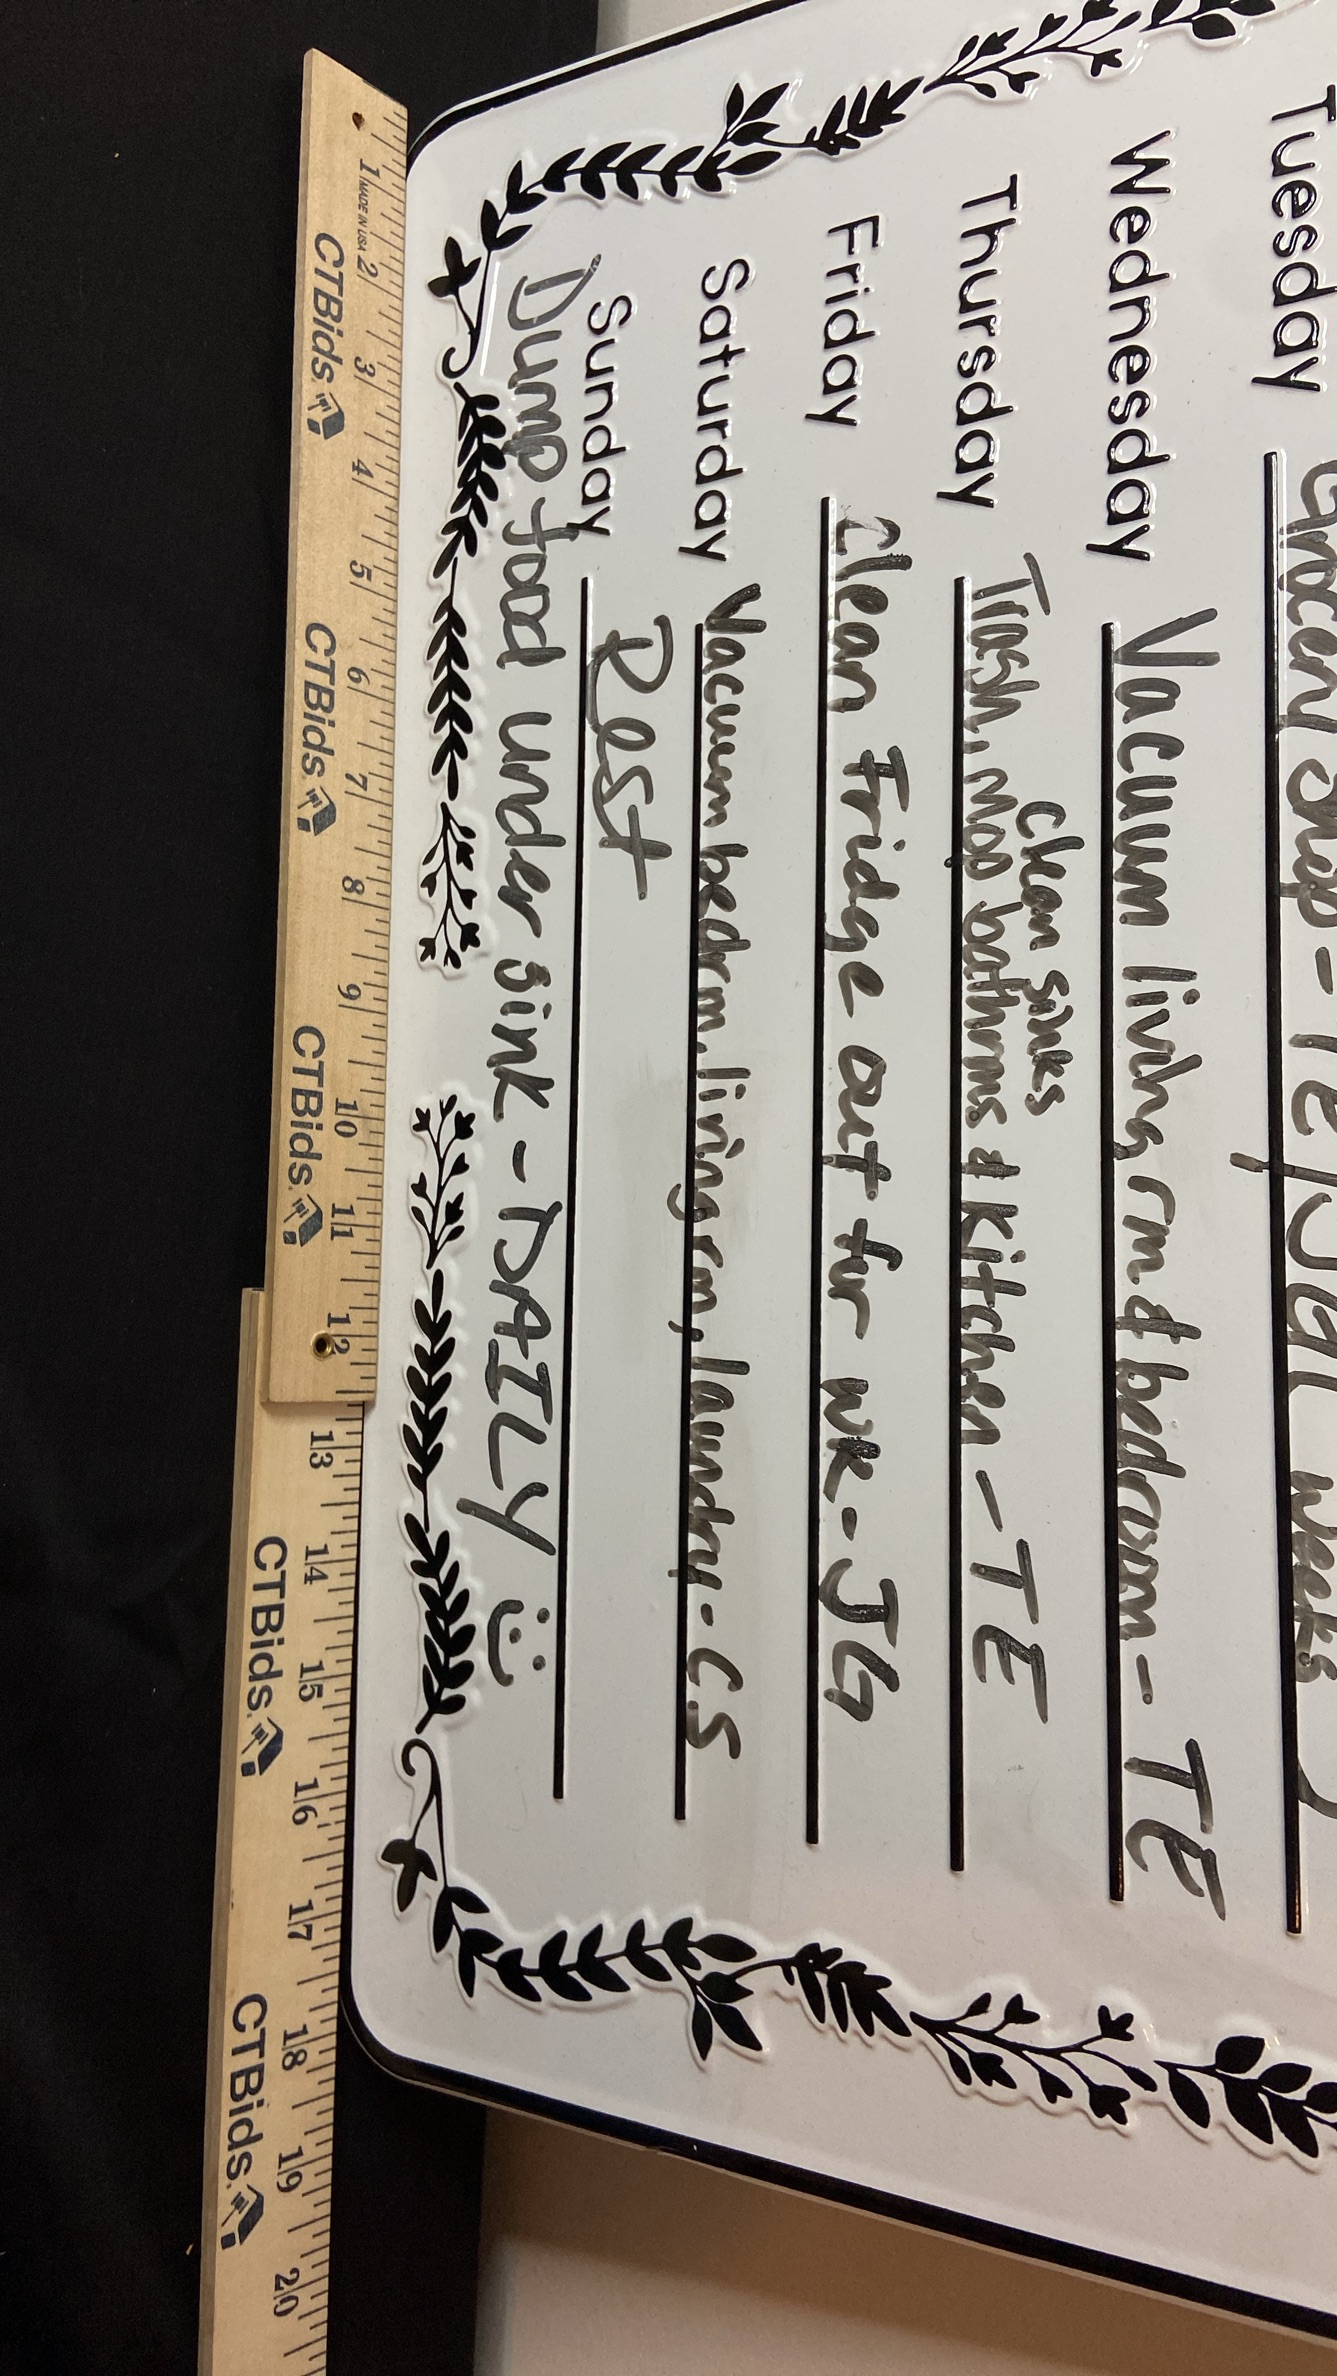 Tuesday Grocery Shop - TE/
Wednesday Vacuum living rm & bedroom - TE
clean sinks
Thursday Trash, mop bathrms & Kitchen - TE
Friday Clean Fridge out for wk - JG
Saturday Vacuum bedrm, living rm, laundry - CS
Sunday Rest
Dump food under sink - DAILY
1 MADE IN USA 2 3 4 5 6 7 8 9 10 11 12 13 14 15 16 17 18 19 20
CTBids. CTBids. CTBids. CTBids. CTBids.